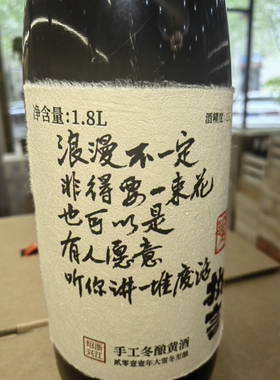 净含量:1.8L
酒精度:
浪漫不一定
非得要一束花
也可以是
有人愿意
听你讲一堆废话
手工冬酿黄酒
贰零壹壹年大雪冬至酿